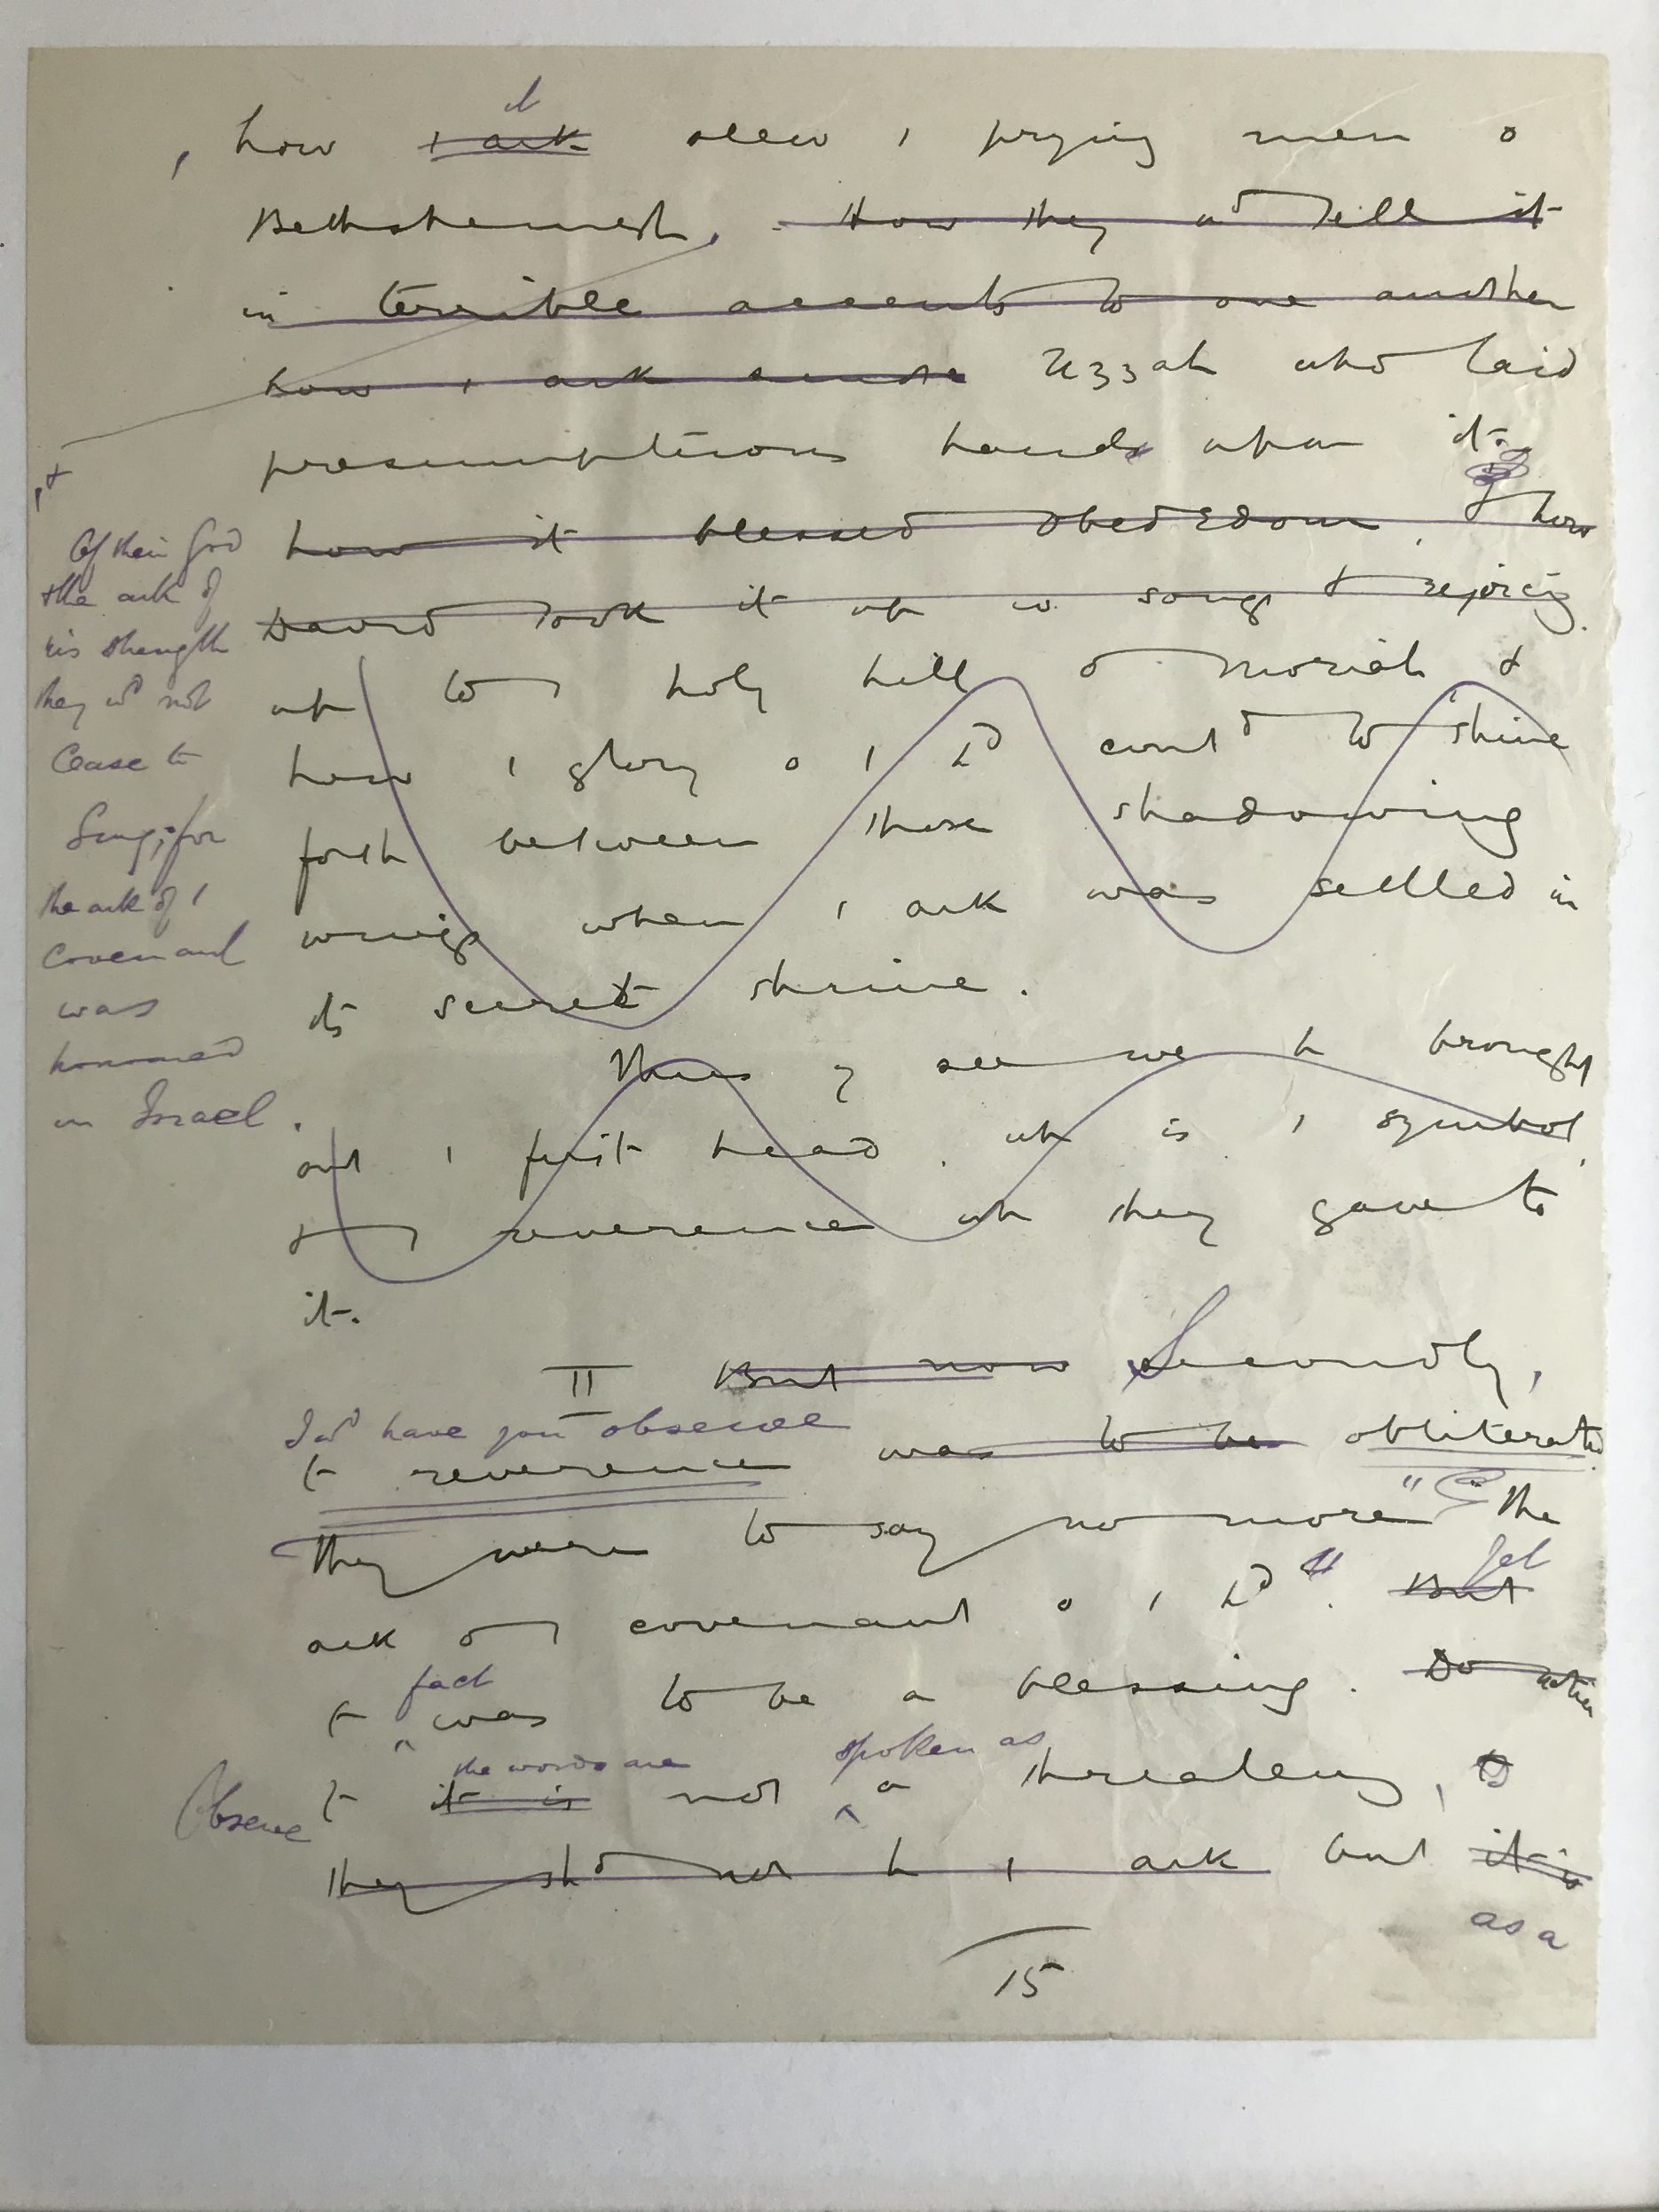 it
, how ı ark slew ı prying men o
Bethshemesh, How they wd tell it
in terrible accents to one another
how ı ark smote Uzzah who laid
presumptuous hands upon it.
, +
how it blessed Obed Edom, & how
David took it up w. song & rejoicing
up to ı holy hill o Moriah &
how ı glory o ı Ld contd to shine
forth between those shadowing
wings when ı ark was settled in
its secret shrine.
Of their God
& the ark of
his strength
they wd not
Cease to
Sing; for
the ark of ı
covenant
was
honoured
in Israel.
Thus y see we h brought
out ı first head, wh is ı symbol,
& ı reverence wh they gave to
it.
II But now Secondly,
I wd have you observe
t reverence was to be obliterated.
They were to say no more "The
ark o ı covenant o ı Ld". But Yet
fact
t was to be a blessing. Do notice
the words are spoken as
Observe t it is not a threatening, t
they shd not h ı ark but it is
as a
15